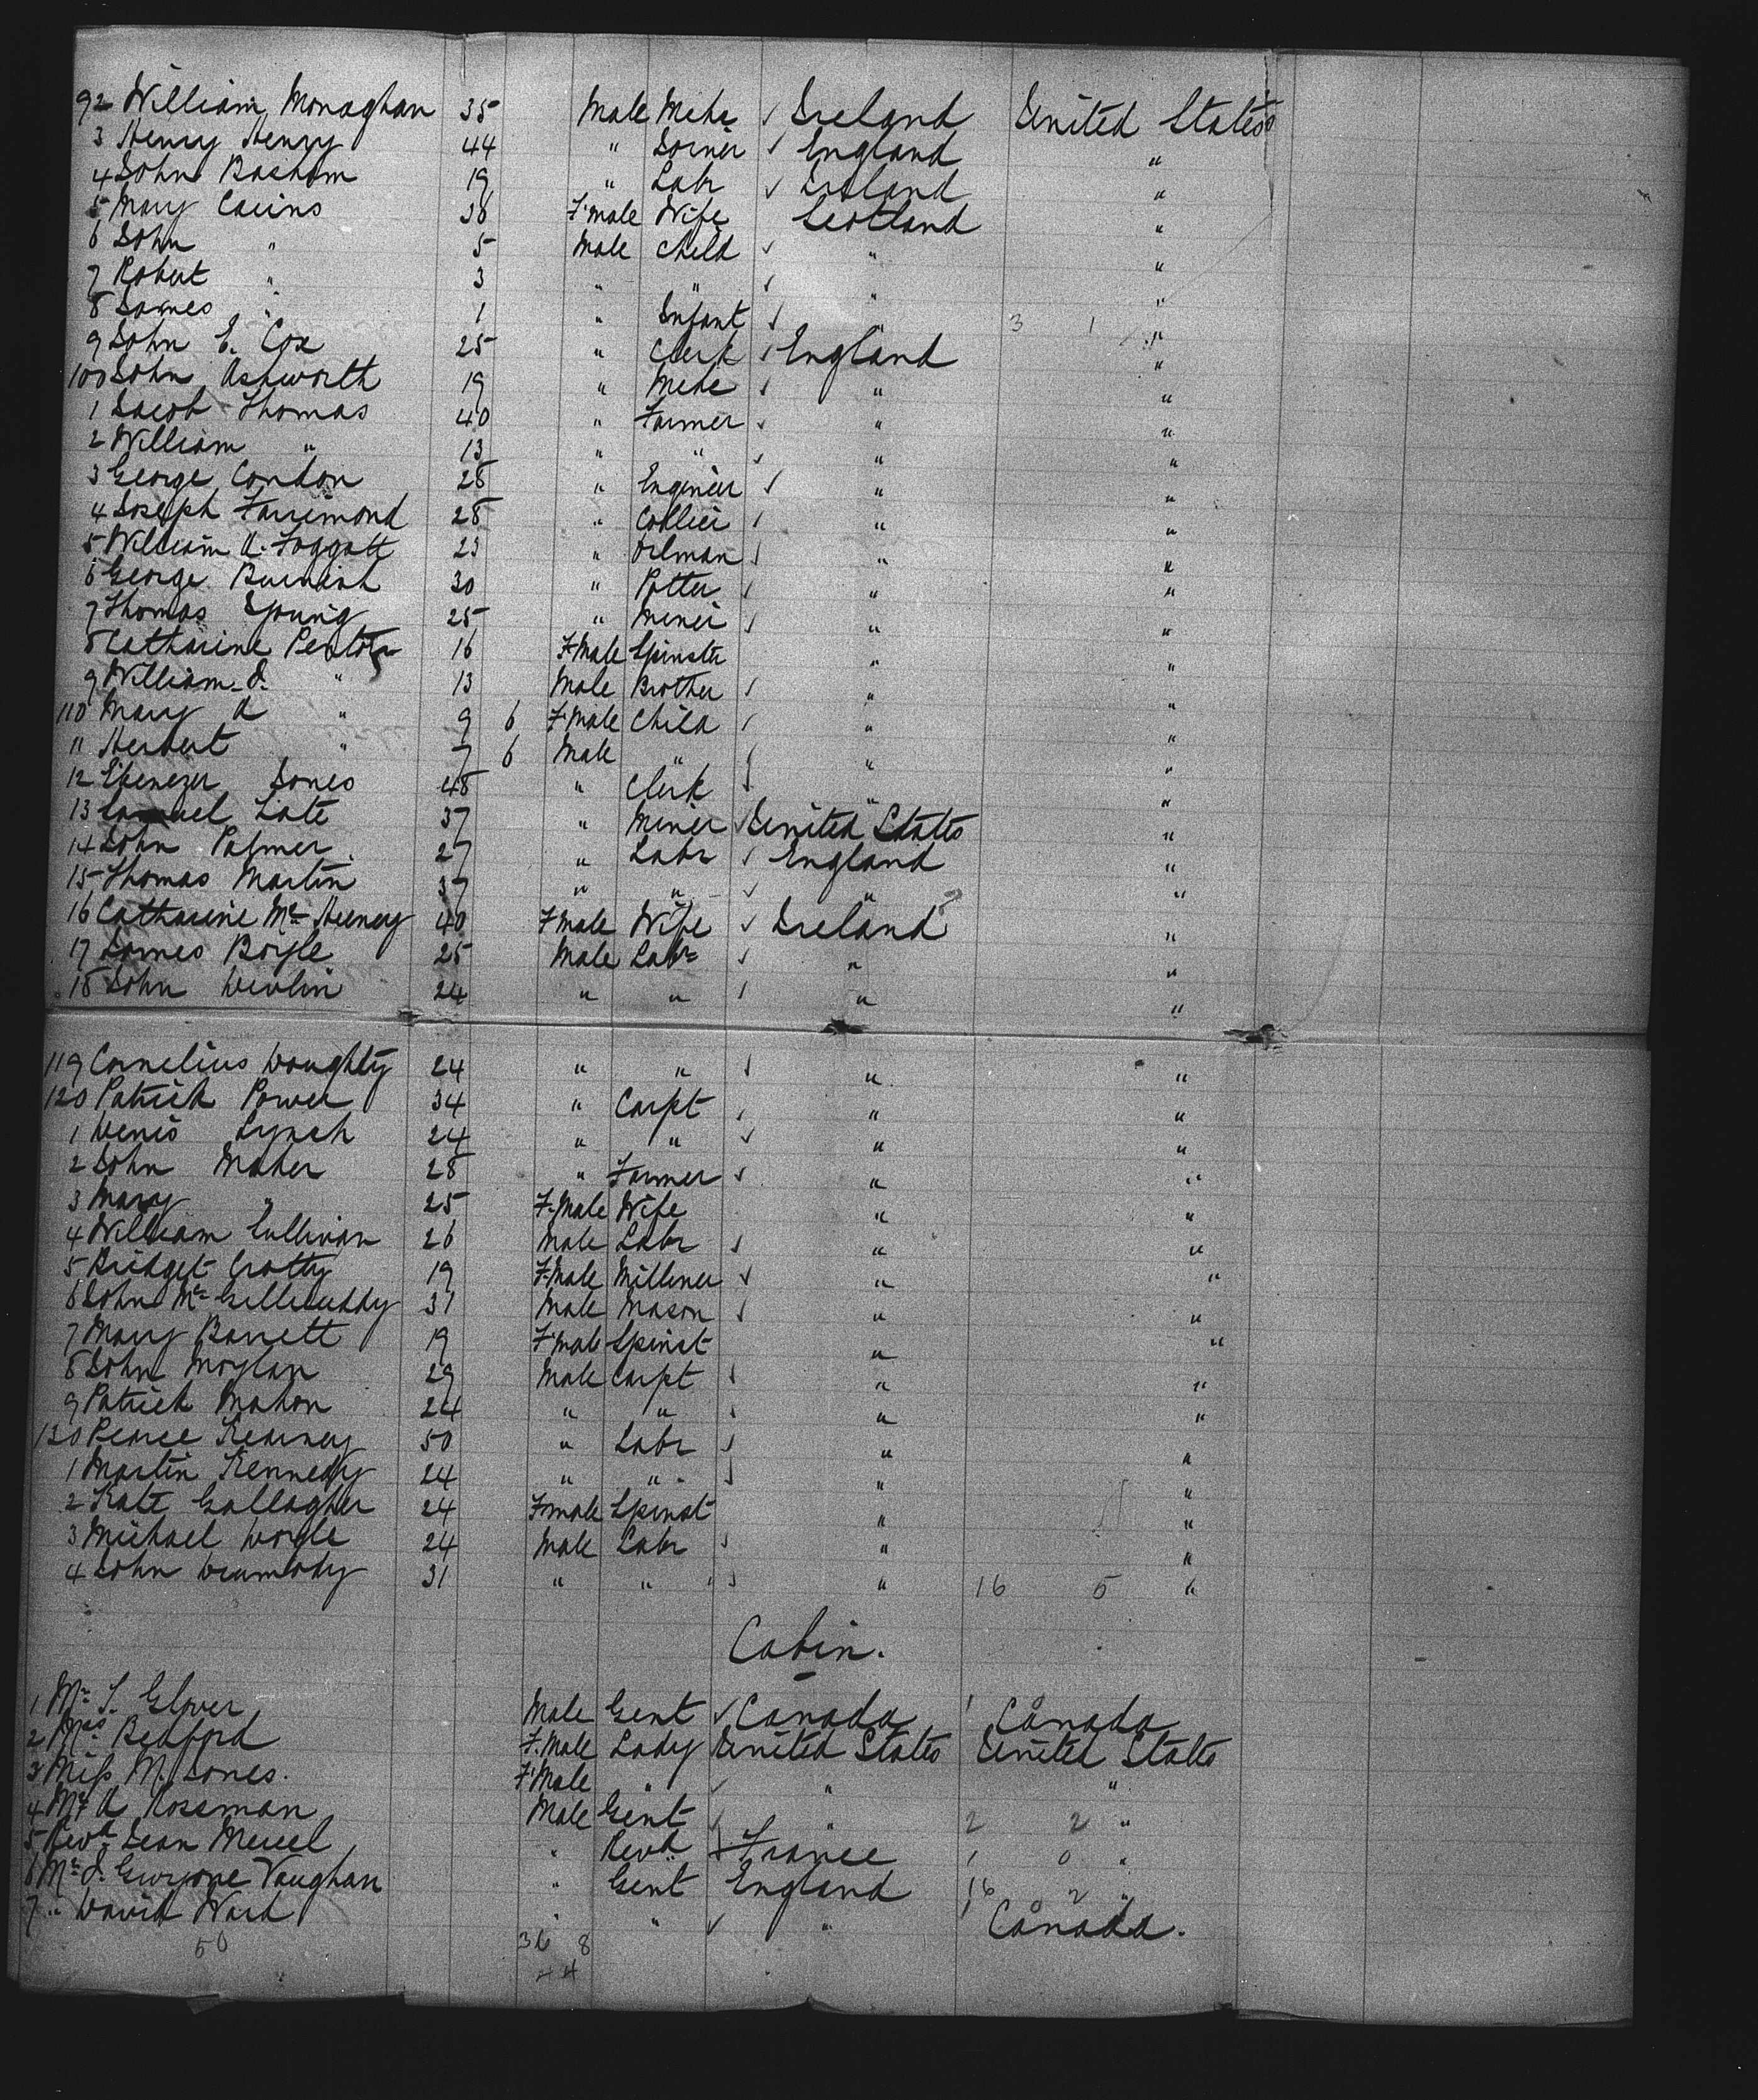 92 William Monaghan 35 Male Mehc ✓ Ireland United States
3 Henry Henry 44 " Joiner ✓ England "
4 John Basham 19 " Labr ✓ Ireland "
5 Mary Cairns 36 F.male Wife Scotland "
6 John " 5 Male Child ✓ " "
7 Robert " 3 " " ✓ " "
8 James " 1 " Infant ✓ " 3 1 "
9 John E. Cox 25 " Clerk ✓ England "
100 John Ashworth 19 " Mehc ✓ " "
1 Jacob Thomas 40 " Farmer ✓ " "
2 William " 13 " " ✓ " "
3 George Condon 28 " Engineer ✓ " "
4 Joseph Farrimond 28 " Collier ✓ " "
5 William A. Foggatt 23 " Oilman ✓ " "
6 George Burnish 30 " Potter ✓ " "
7 Thomas Young 25 " Miner ✓ " "
8 Catharine 16 F.Male Spinster " "
9 William J. " 13 Male Brother ✓ " "
110 Mary A " 9 6 F.Male Child ✓ " "
11 Herbert " 7 6 Male " ✓ " "
12 Ebenezer Jones 48 " Clerk ✓ " "
13 Samuel Late 37 " Miner ✓ United States "
14 John Palmer 27 " Labr ✓ England "
15 Thomas Martin 37 " " ✓ " "
16 Catharine Mc Heeney 40 F.Male Wife ✓ Ireland "
17 James Boyle 25 Male Labr ✓ " "
18 John Devlin 24 " " ✓ " "
119 Cornelius Doughty 24 " " ✓ " "
120 Patrick Power 34 " Carpt ✓ " "
1 Denis Lynch 24 " " ✓ " "
2 John Maher 28 " Farmer ✓ " "
3 Mary " 25 F.Male Wife " "
4 William Sullivan 26 Male Labr ✓ " "
5 Bridget Crotty 19 F.Male Milliner ✓ " "
6 John Mc Gillicuddy 31 Male Mason ✓ " "
7 Mary Barrett 19 F.male Spinst " "
8 John Moylan 29 Male Carpt ✓ " "
9 Patrick Mahon 24 " " ✓ " "
130 Pearce Kearney 50 " Labr ✓ " "
1 Martin Kennedy 24 " " ✓ " "
2 Kate Gallagher 24 F.male Spinst " "
3 Michael Doyle 24 Male Labr ✓ " "
4 John Drumody 31 " " ✓ " 16 5 "
Cabin.
1 Mr. S. Glover Male Gent ✓ Canada 1 Canada
2 Mrs. Bedford F.Male Lady United States United States
3 Miss M. Jones. F.Male " ✓ " "
4 Mr. A Rossman Male Gent ✓ " 2 2 "
5 Revd Jean " Revd ✓ France 1 0 "
6 Mr. J. Gwynne Vaughan " Gent England 16 2 "
7 " David Ward " " ✓ " 1 Canada.
50 36 8
44